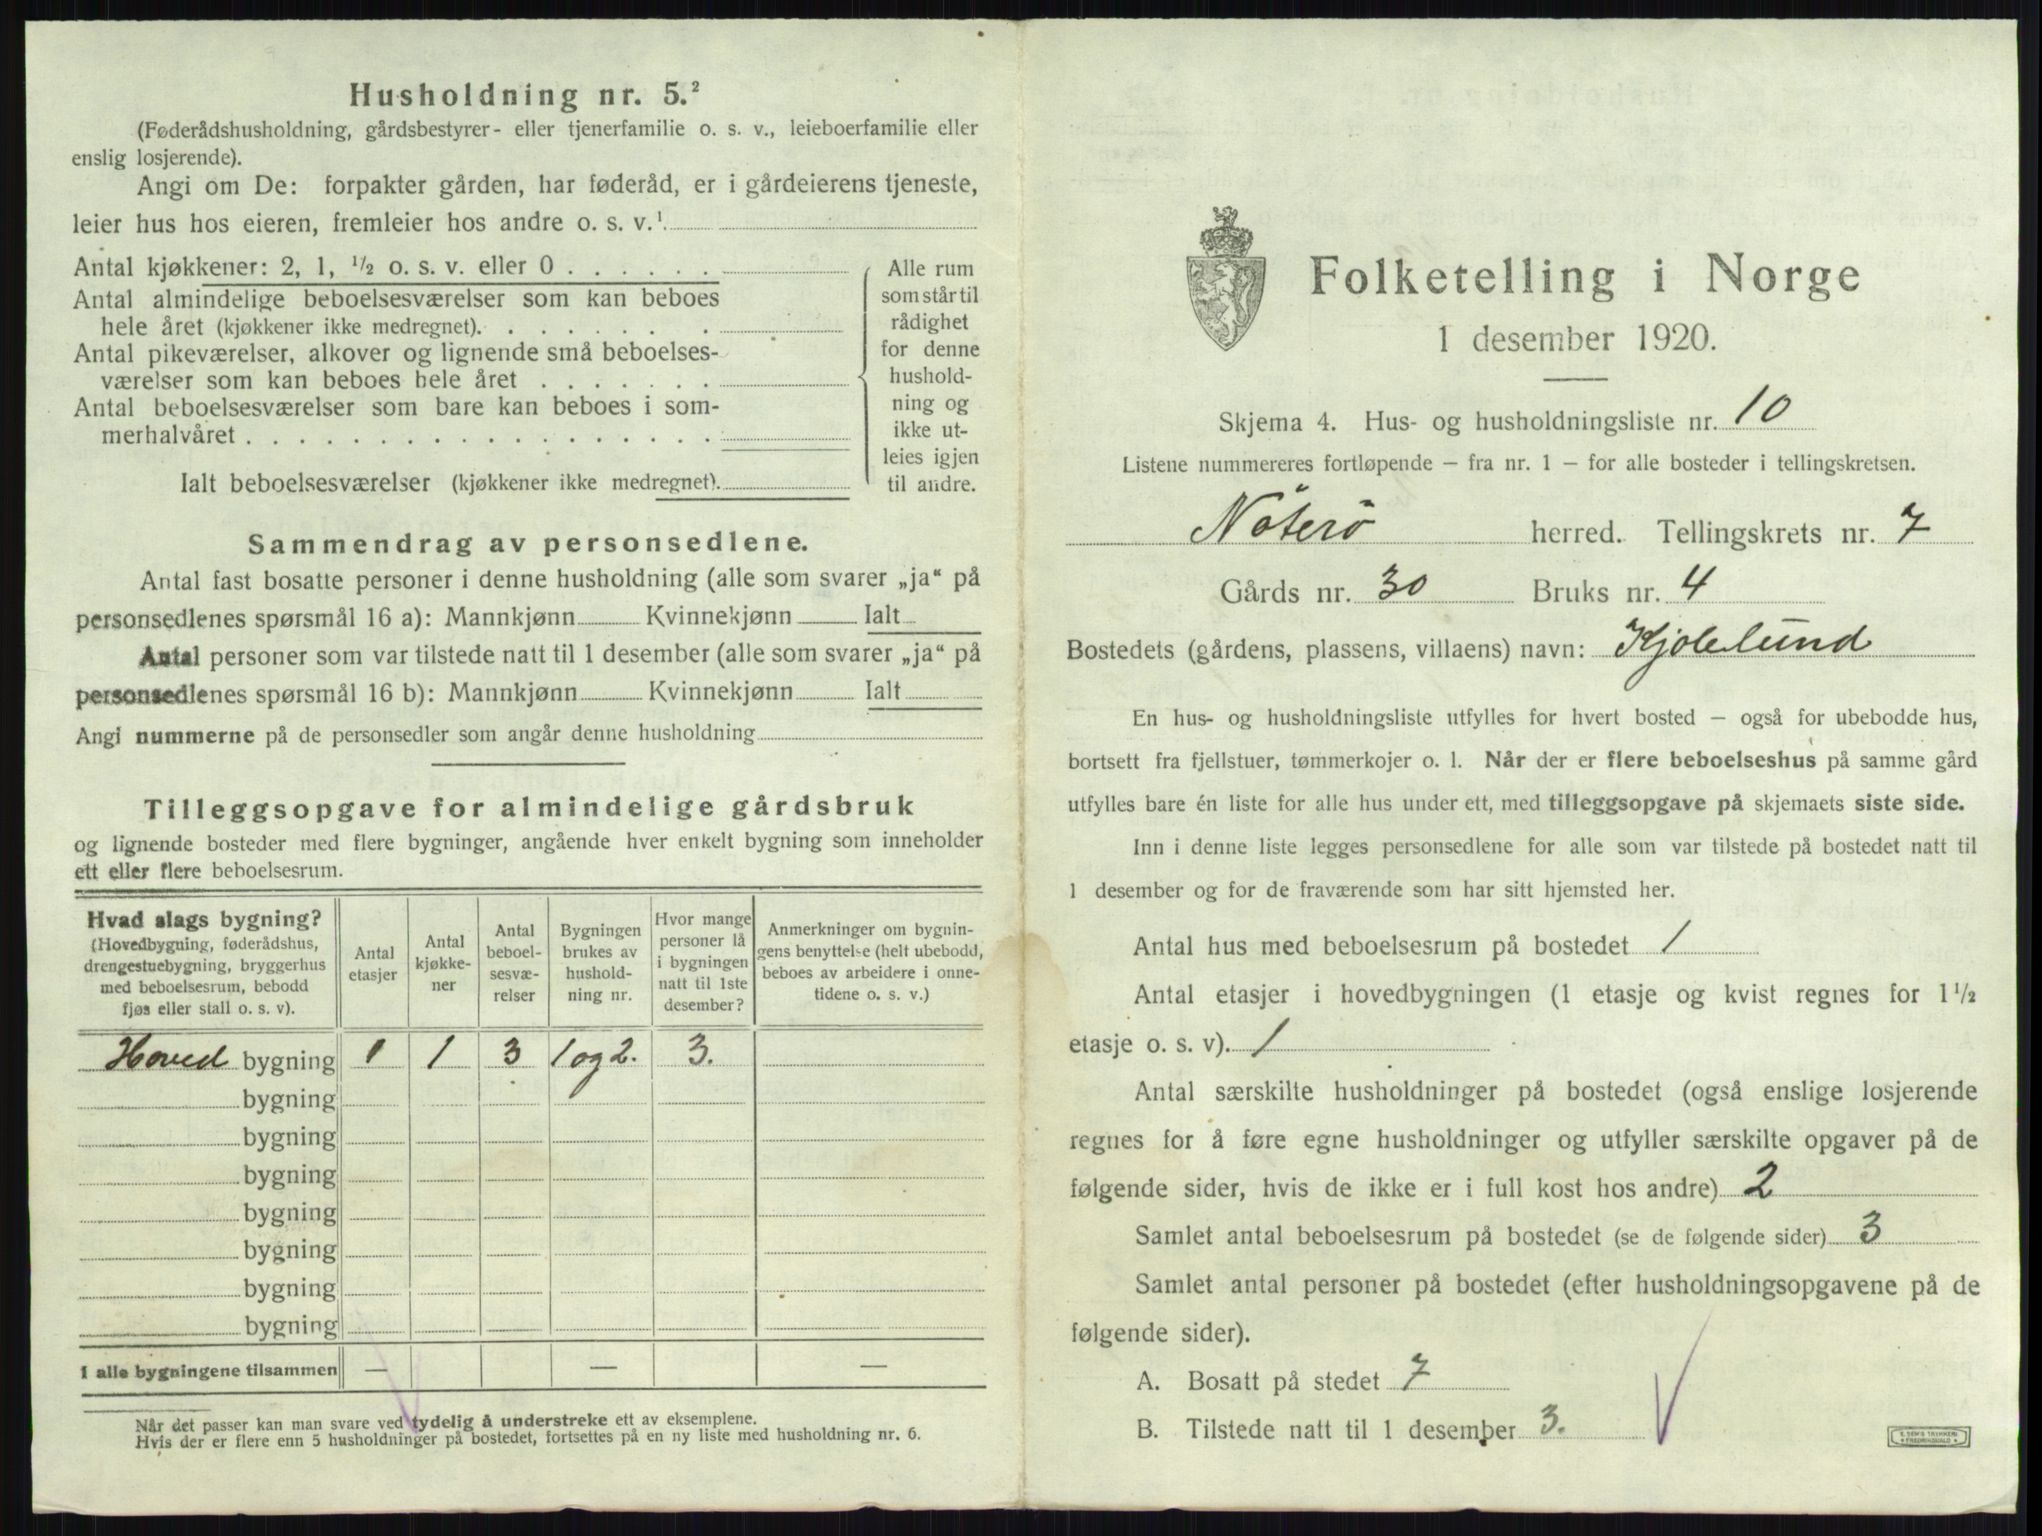 Husholdning nr. 5.²
(Føderådshusholdning, gårdsbestyrer- eller tjenerfamilie o. s. v., leieboerfamilie eller
enslig losjerende).
Angi om De: forpakter gården, har føderåd, er i gårdeierens tjeneste,
leier hus hos eieren, fremleier hos andre o. s. v.¹
Antal kjøkkener: 2, 1, ½ o. s. v. eller 0 . . . . . .
Antal almindelige beboelsesværelser som kan beboes
hele året (kjøkkener ikke medregnet). . . . . . . .
Antal pikeværelser, alkover og lignende små beboelses-
værelser som kan beboes hele året . . . . . . .
Antal beboelsesværelser som bare kan beboes i som-
merhalvåret . . . . . . . . . . . . . . . . . .
Ialt beboelsesværelser (kjøkkener ikke medregnet).
Alle rum
som står til
rådighet
for denne
hushold-
ning og
ikke ut-
leies igjen
til andre.
Sammendrag av personsedlene.
Antal fast bosatte personer i denne husholdning (alle som svarer „ja“ på
personsedlenes spørsmål 16 a): Mannkjønn Kvinnekjønn Ialt
Antal personer som var tilstede natt til 1 desember (alle som svarer „ja“ på
personsedlenes spørsmål 16 b): Mannkjønn Kvinnekjønn Ialt
Angi nummerne på de personsedler som angår denne husholdning
Tilleggsopgave for almindelige gårdsbruk
og lignende bosteder med flere bygninger, angående hver enkelt bygning som inneholder
ett eller flere beboelsesrum.
Hvad slags bygning?
(Hovedbygning, føderådshus,
drengestuebygning, bryggerhus
med beboelsesrum, bebodd
fjøs eller stall o. s. v).
Antal
etasjer
Antal
kjøkke-
ner
Antal
beboel-
sesvæ-
relser
Bygningen
brukes av
hushold-
ning nr.
Hvor mange
personer lå
i bygningen
natt til 1ste
desember?
Anmerkninger om bygnin-
gens benyttelse (helt ubebodd,
beboes av arbeidere i onne-
tidene o. s. v.)
Hoved bygning 1 1 3 1 og 2. 3.
bygning
bygning
bygning
bygning
bygning
bygning
bygning
I alle bygningene tilsammen — — —
Når det passer kan man svare ved tydelig å understreke ett av eksemplene.
Hvis der er flere enn 5 husholdninger på bostedet, fortsettes på en ny liste med husholdning nr. 6.
Folketelling i Norge
1 desember 1920.
Skjema 4. Hus- og husholdningsliste nr. 10
Listene nummereres fortløpende — fra nr. 1 — for alle bosteder i tellingskretsen.
Nöterö herred. Tellingskrets nr. 7
Gårds nr. 30 Bruks nr. 4
Bostedets (gårdens, plassens, villaens) navn: Kjölelund
En hus- og husholdningsliste utfylles for hvert bosted — også for ubebodde hus,
bortsett fra fjellstuer, tømmerkojer o. l. Når der er flere beboelseshus på samme gård
utfylles bare én liste for alle hus under ett, med tilleggsopgave på skjemaets siste side.
Inn i denne liste legges personsedlene for alle som var tilstede på bostedet natt til
1 desember og for de fraværende som har sitt hjemsted her.
Antal hus med beboelsesrum på bostedet 1
Antal etasjer i hovedbygningen (1 etasje og kvist regnes for 1½
etasje o. s. v). 1
Antal særskilte husholdninger på bostedet (også enslige losjerende
regnes for å føre egne husholdninger og utfyller særskilte opgaver på de
følgende sider, hvis de ikke er i full kost hos andre) 2
Samlet antal beboelsesrum på bostedet (se de følgende sider) 3
Samlet antal personer på bostedet (efter husholdningsopgavene på de
følgende sider).
A. Bosatt på stedet 7
B. Tilstede natt til 1 desember 3.